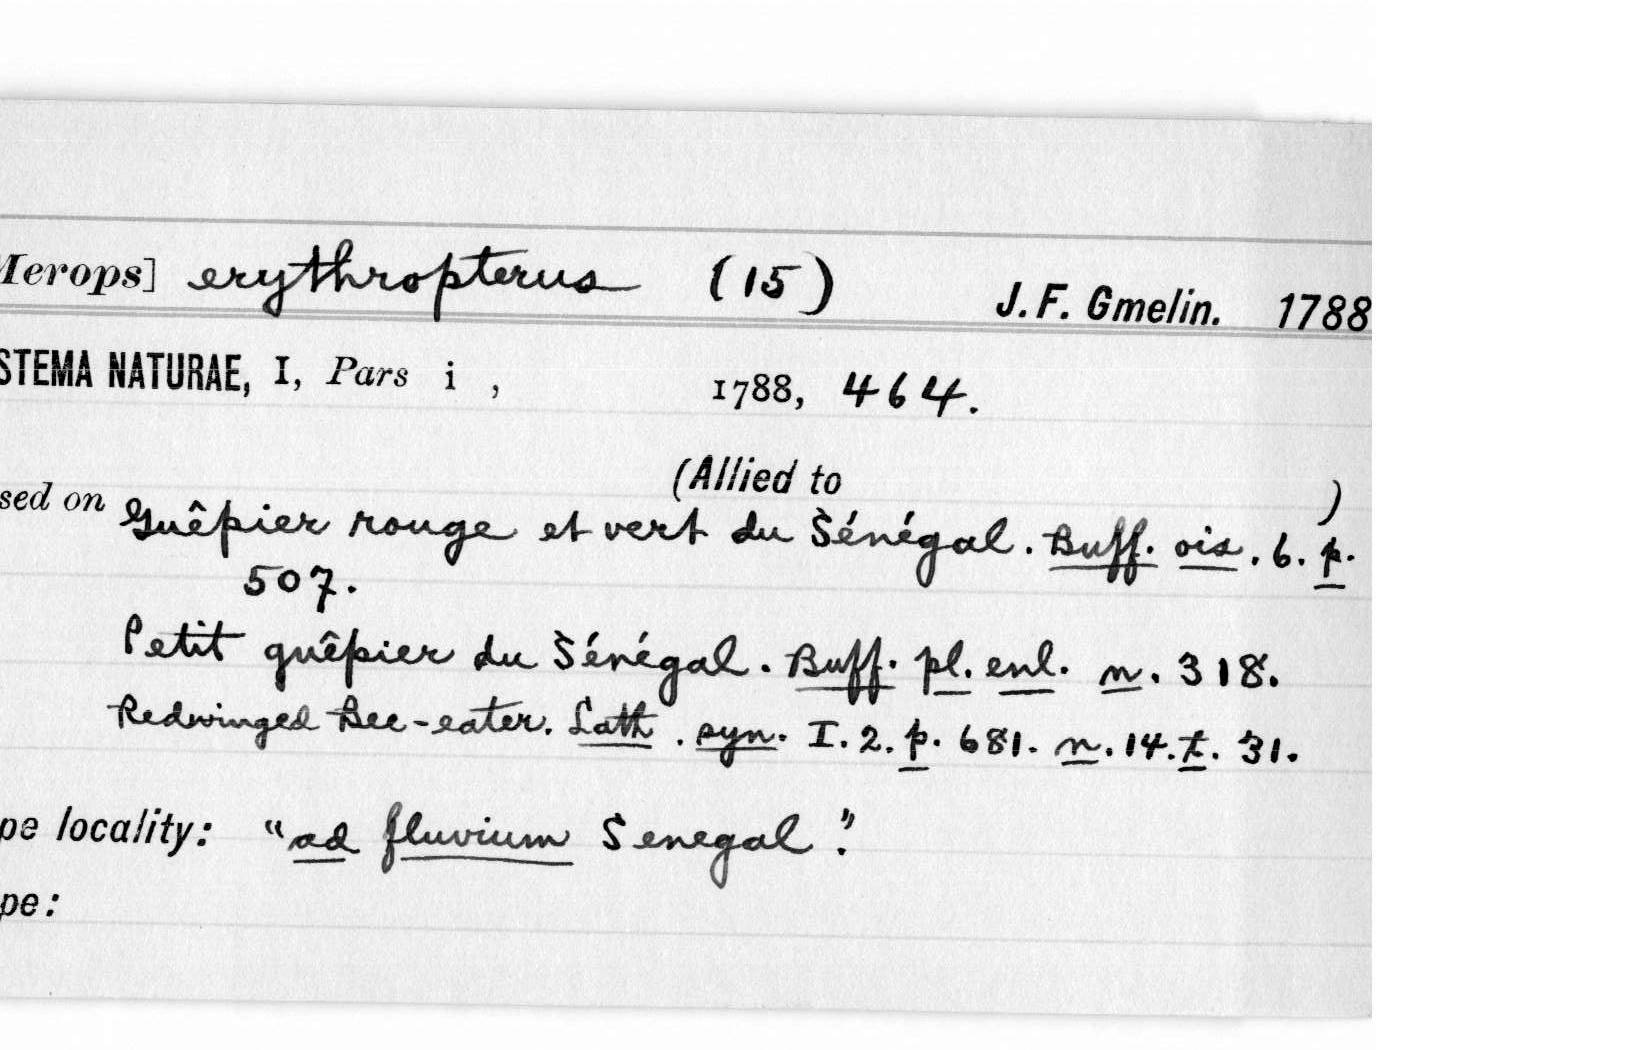 Merops] erythropterus (15) J. F. Gmelin. 1788
STEMA NATURAE, I, Pars i , 1788, 464.
(Allied to )
sed on Guêpier rouge et vert du Sénégal. Buff. ois. 6. p.
507.
Petit guêpier du Sénégal. Buff. pl. enl. n. 318.
Redwinged Bee-eater. Lath. syn. I. 2. p. 681. n. 14. t. 31.
pe locality: "ad fluvium Senegal".
pe: